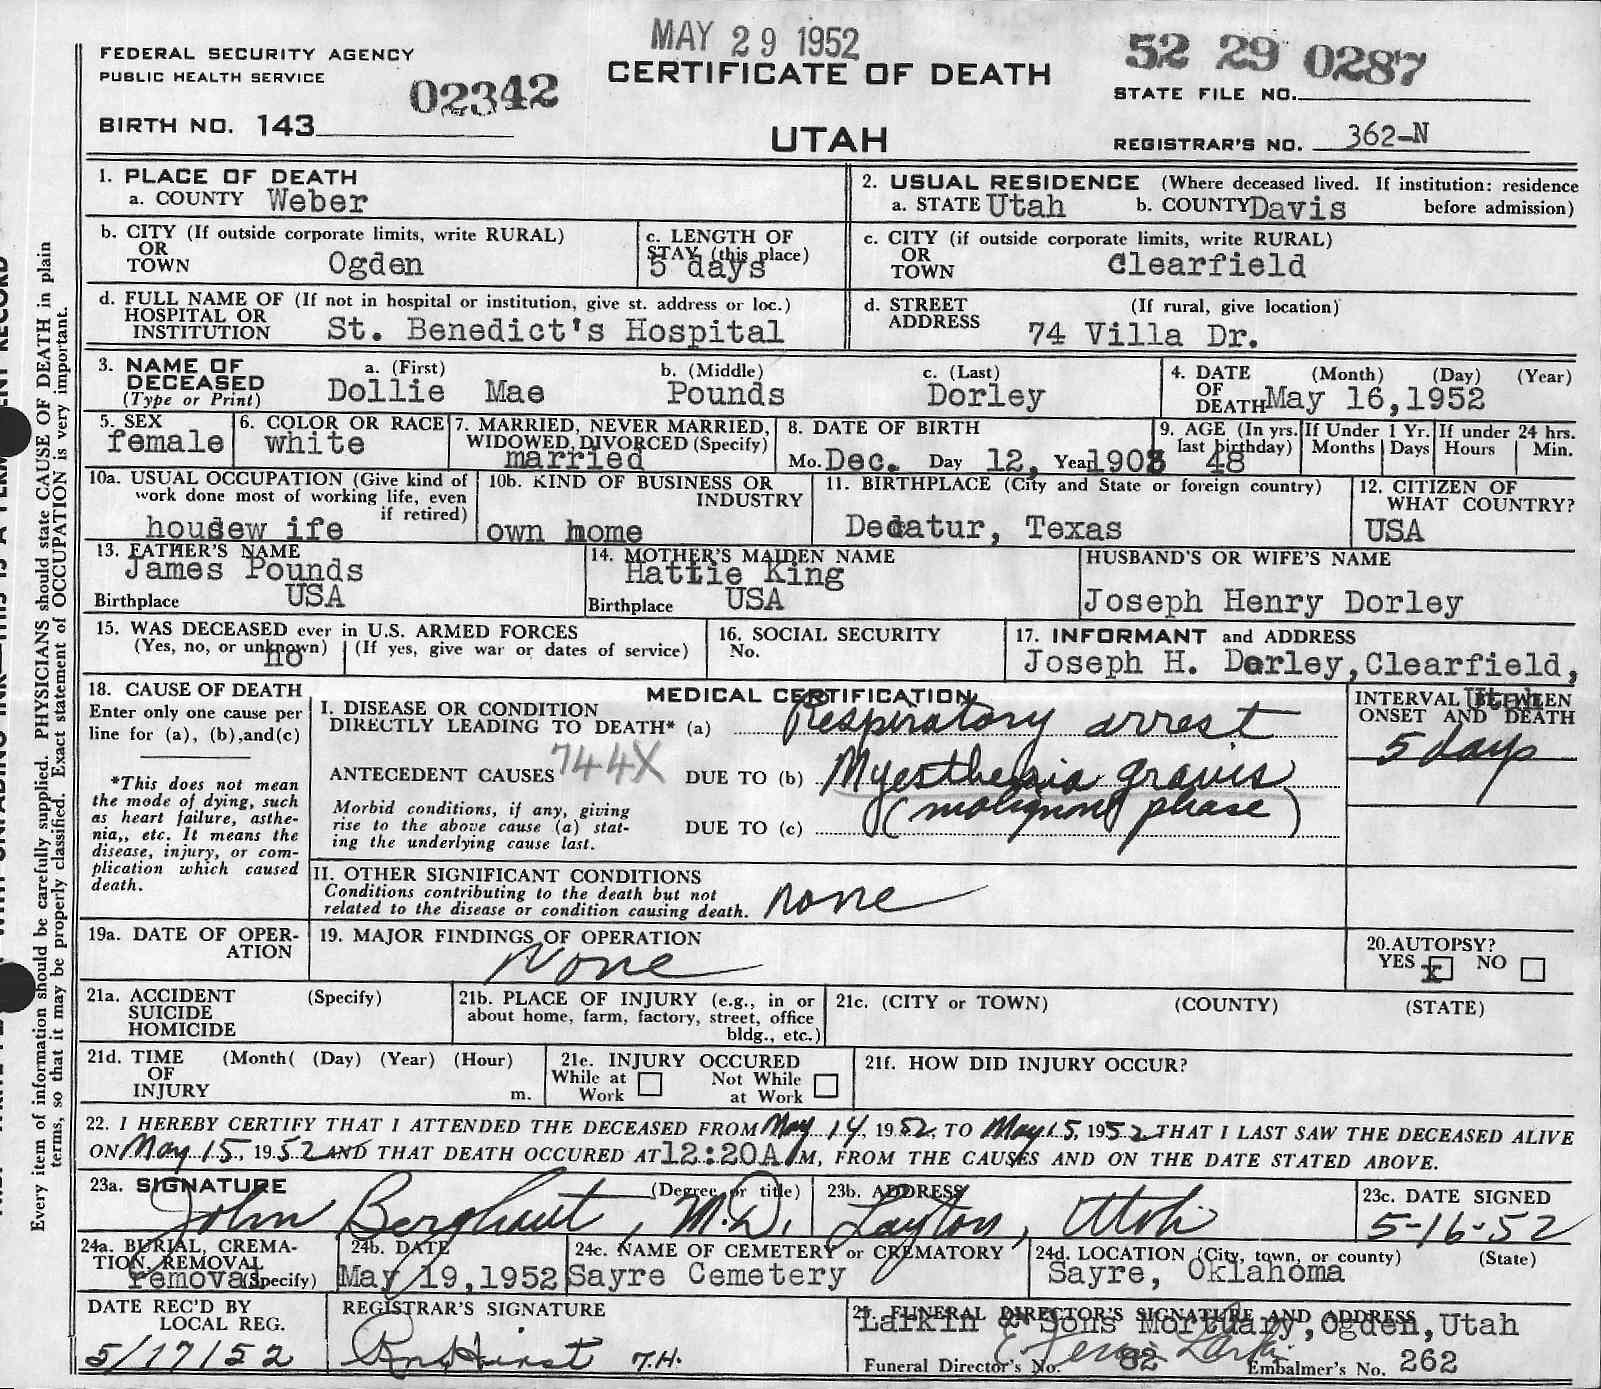 MAY 29 1952
FEDERAL SECURITY AGENCY
PUBLIC HEALTH SERVICE
02342
CERTIFICATE OF DEATH
52 29 0287
STATE FILE NO.
BIRTH NO. 143
UTAH
REGISTRAR'S NO. 362-N
1. PLACE OF DEATH
a. COUNTY Weber
2. USUAL RESIDENCE (Where deceased lived. If institution: residence before admission)
a. STATE Utah b. COUNTY Davis
b. CITY (If outside corporate limits, write RURAL)
OR
TOWN Ogden
c. LENGTH OF
STAY (this place)
5 days
c. CITY (if outside corporate limits, write RURAL)
OR
TOWN Clearfield
d. FULL NAME OF (If not in hospital or institution, give st. address or loc.)
HOSPITAL OR
INSTITUTION St. Benedict's Hospital
d. STREET (If rural, give location)
ADDRESS 74 Villa Dr.
3. NAME OF DECEASED (Type or Print)
a. (First) b. (Middle) c. (Last)
Dollie Mae Pounds Dorley
4. DATE OF DEATH (Month) (Day) (Year)
May 16,1952
5. SEX
female
6. COLOR OR RACE
white
7. MARRIED, NEVER MARRIED,
WIDOWED, DIVORCED (Specify)
married
8. DATE OF BIRTH
Mo. Dec. Day 12, Year 1903
9. AGE (In yrs. last birthday)
48
If Under 1 Yr.
Months Days
If under 24 hrs.
Hours Min.
10a. USUAL OCCUPATION (Give kind of
work done most of working life, even
if retired)
housew ife
10b. KIND OF BUSINESS OR
INDUSTRY
own home
11. BIRTHPLACE (City and State or foreign country)
Decatur, Texas
12. CITIZEN OF
WHAT COUNTRY?
USA
13. FATHER'S NAME
James Pounds
Birthplace USA
14. MOTHER'S MAIDEN NAME
Hattie King
Birthplace USA
HUSBAND'S OR WIFE'S NAME
Joseph Henry Dorley
15. WAS DECEASED ever in U.S. ARMED FORCES
(Yes, no, or unknown) (If yes, give war or dates of service)
no
16. SOCIAL SECURITY
No.
17. INFORMANT and ADDRESS
Joseph H. Dorley, Clearfield,
Utah
18. CAUSE OF DEATH
Enter only one cause per
line for (a), (b),and(c)
*This does not mean
the mode of dying, such
as heart failure, asthe-
nia,, etc. It means the
disease, injury, or com-
plication which caused
death.
MEDICAL CERTIFICATION
I. DISEASE OR CONDITION
DIRECTLY LEADING TO DEATH* (a) Respiratory arrest
ANTECEDENT CAUSES 744X DUE TO (b) Myesthenia gravis
Morbid conditions, if any, giving
rise to the above cause (a) stat-
ing the underlying cause last.
DUE TO (c) (malignant phase)
INTERVAL BETWEEN
ONSET AND DEATH
5 days
II. OTHER SIGNIFICANT CONDITIONS
Conditions contributing to the death but not
related to the disease or condition causing death. none
19a. DATE OF OPER-
ATION
19. MAJOR FINDINGS OF OPERATION
None
20. AUTOPSY?
YES x NO
21a. ACCIDENT (Specify)
SUICIDE
HOMICIDE
21b. PLACE OF INJURY (e.g., in or
about home, farm, factory, street, office
bldg., etc.)
21c. (CITY or TOWN) (COUNTY) (STATE)
21d. TIME (Month( (Day) (Year) (Hour)
OF
INJURY m.
21e. INJURY OCCURED
While at Work Not While at Work
21f. HOW DID INJURY OCCUR?
22. I HEREBY CERTIFY THAT I ATTENDED THE DECEASED FROM May 14, 1952, TO May 15, 1952 THAT I LAST SAW THE DECEASED ALIVE
ON May 15, 1952 AND THAT DEATH OCCURED AT 12:20A M, FROM THE CAUSES AND ON THE DATE STATED ABOVE.
23a. SIGNATURE (Degree or title)
John Berghout, M.D.
23b. ADDRESS
Layton, Utah
23c. DATE SIGNED
5-16-52
24a. BURIAL, CREMA-
TION, REMOVAL
(Specify)
removal
24b. DATE
May 19,1952
24c. NAME OF CEMETERY or CREMATORY
Sayre Cemetery
24d. LOCATION (City, town, or county) (State)
Sayre, Oklahoma
DATE REC'D BY
LOCAL REG.
5/17/52
REGISTRAR'S SIGNATURE
Hirst T.H.
25. FUNERAL DIRECTOR'S SIGNATURE AND ADDRESS
Larkin & Sons Mortuary, Ogden, Utah
Funeral Director's No. 82 Embalmer's No. 262
Every item of information should be carefully supplied. PHYSICIANS should state CAUSE OF DEATH in plain
terms, so that it may be properly classified. Exact statement of OCCUPATION is very important.